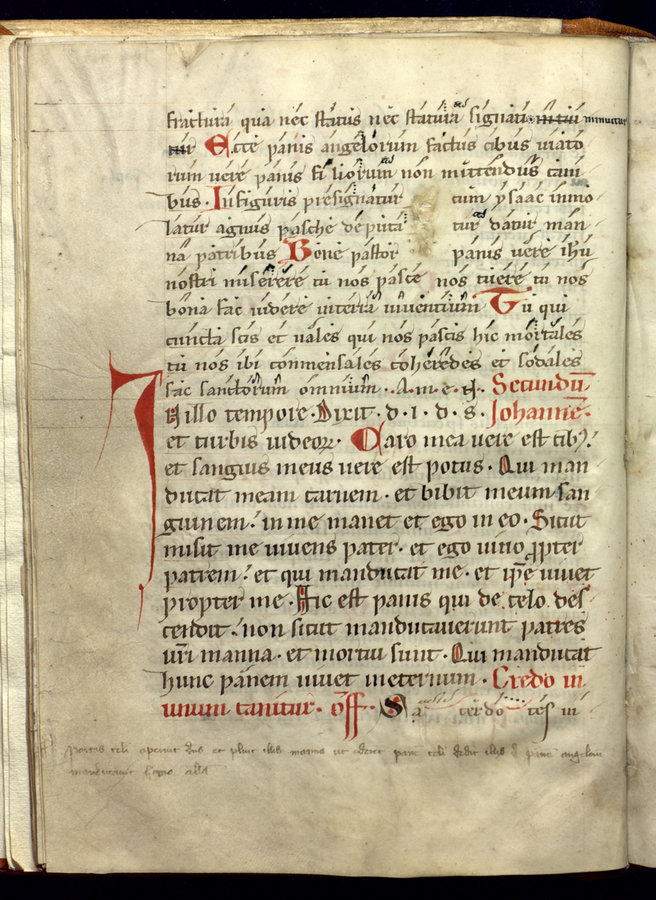 fractura qua nec status nec statura signati minuitur
Ecce panis angelorum factus cibus viato
rum vere panis fi liorum non mittendus cani
bus. In figuris presignatur cum ysaac immo
latur agnus pasche deputa tur datur man
na patribus Bone pastor panis vere ihu
nostri miserere tu nos pasce nos tuere tu nos
bona fac videre in terra viventium Tu qui
cuncta scis et vales qui nos pascis hic mortales
tu nos ibi conmensales coheredes et sodales
fac sanctorum omnium. A.m.e.n. Secundu
In illo tempore. Dixit. d. i. d. s. Johanne
et turbis iudeor. Caro mea vere est cib
et sanguis meus vere est potus. Qui man
ducat meam carnem. et bibit meum san
guinem. in me manet et ego in eo. Sicut
misit me vivens pater. et ego vivo propter
patrem. et qui manducat me. et ipe vivet
propter me. Hic est panis qui de celo des
cendit. non sicut manducaverunt patres
vri manna. et mortui sunt. Qui manducat
hunc panem vivet in eternum. Credo in
unum canitur. off. Sa cerdo tes in
portas celi aperuit dns et pluit illis manna ut ederet pane celi dedit illis pane angelorum
manducavit homo alla